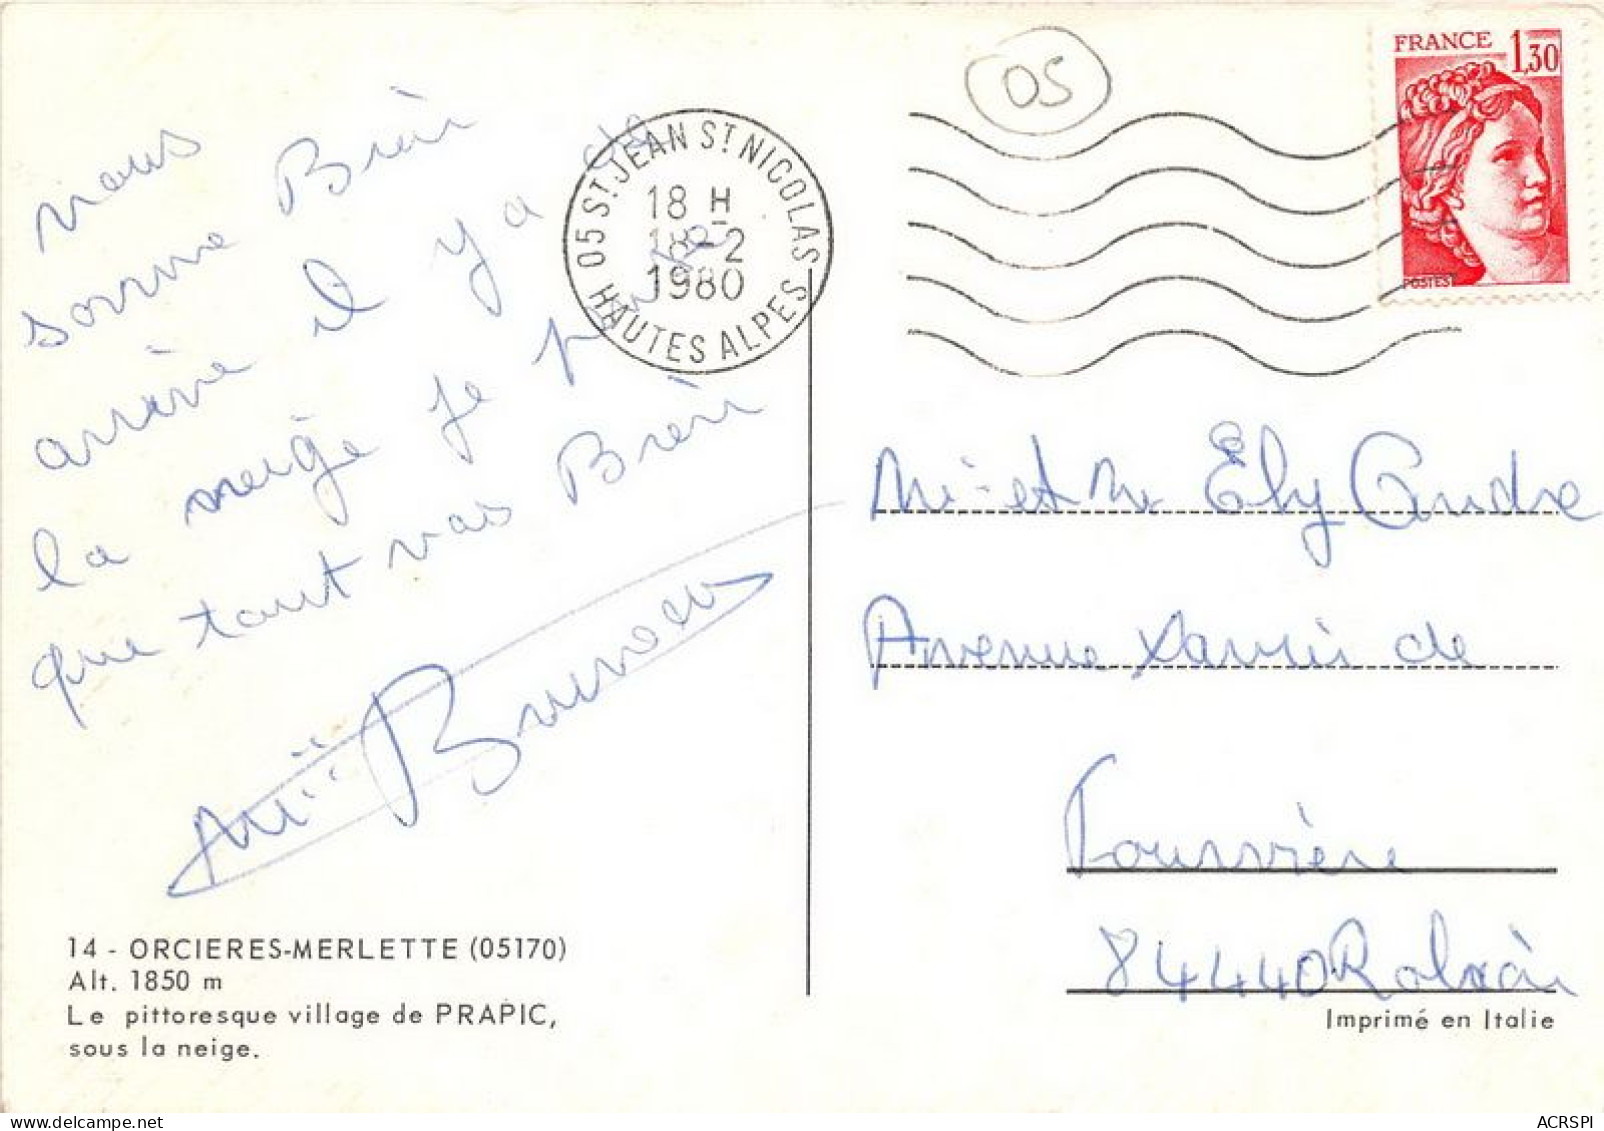 nous
somme Bien
arrive il y a de
la neige je pense
que tout vas Bien
Bruneau
14 - ORCIERES-MERLETTE (05170)
Alt. 1850 m
Le pittoresque village de PRAPIC,
sous la neige.
05 ST JEAN ST NICOLAS
18 H
18-2
1980
HAUTES ALPES
05
FRANCE 1,30
POSTES
Mr et Mme Ely Andre
Avenue Xavier de
Fourvière
84440 Robion
Imprimé en Italie
ACRSPI